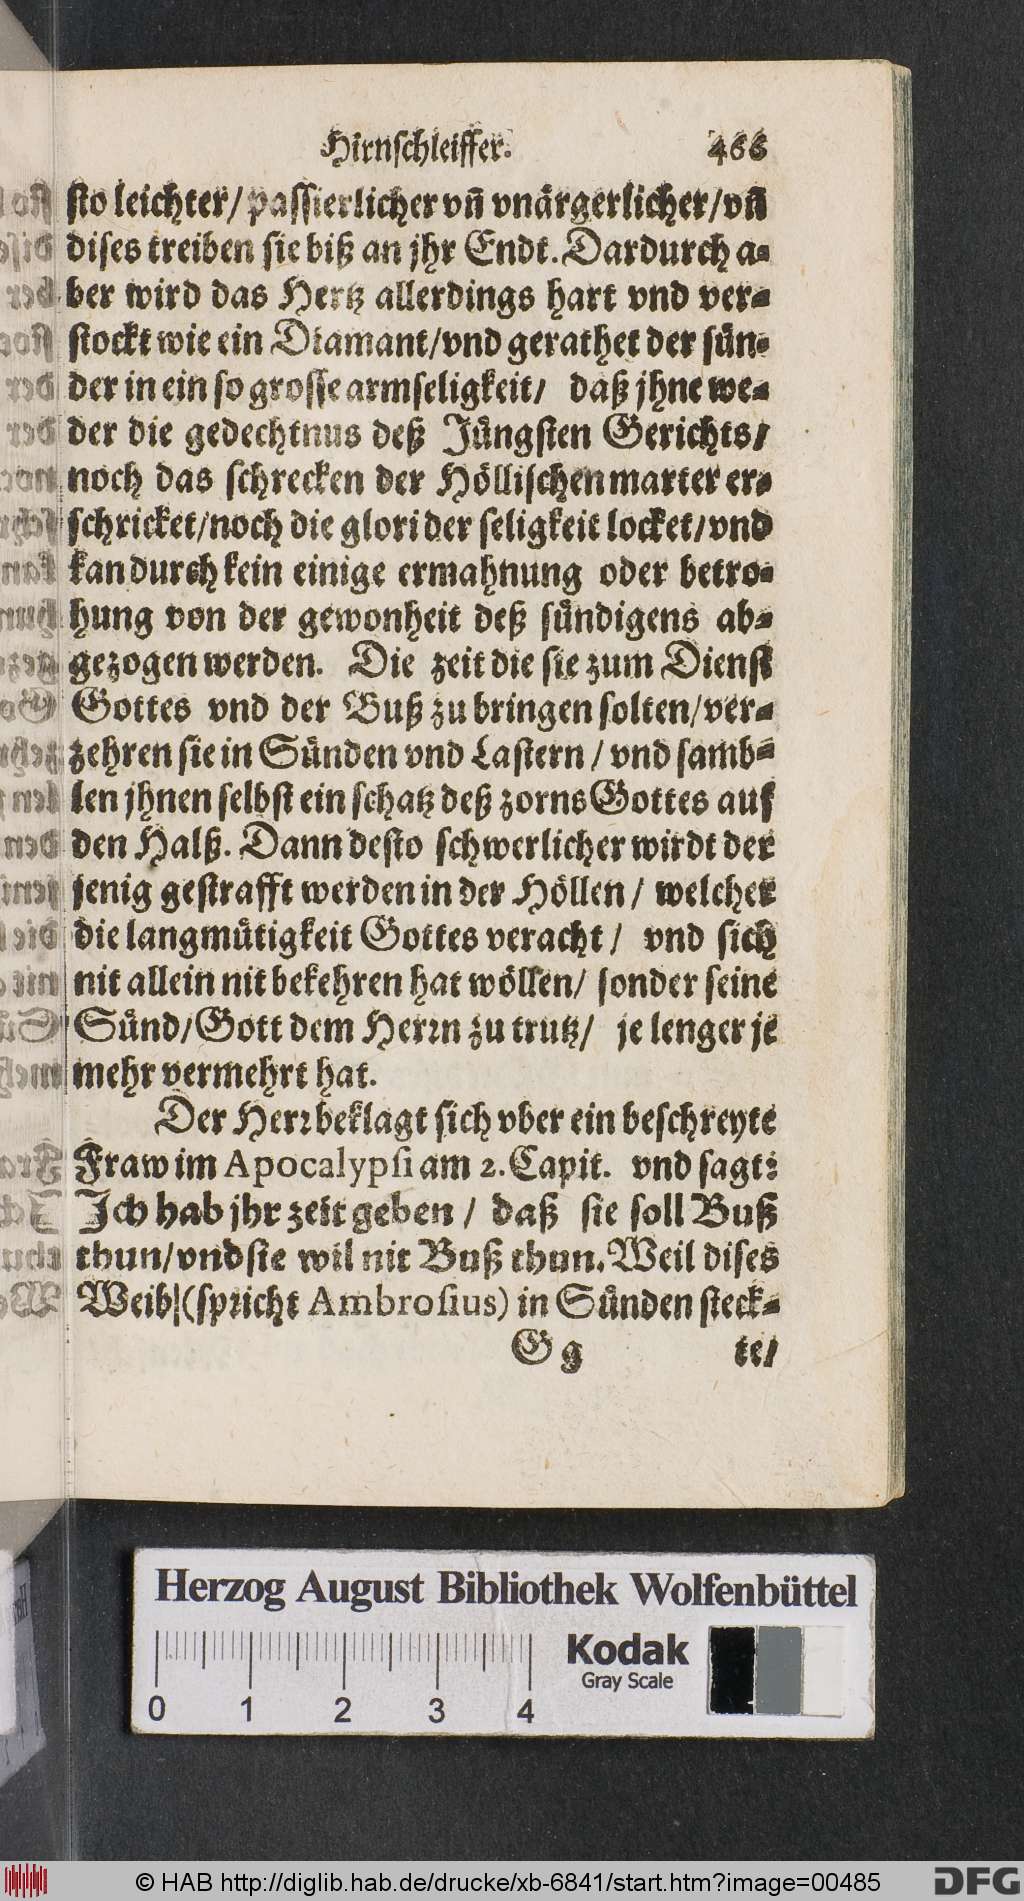 Hirnschleiffer. 466
sto leichter/ passierlicher vñ vnärgerlicher/vñ
dises treiben sie biß an jhr Endt. Dardurch a-
ber wird das Hertz allerdings hart vnd ver-
stockt wie ein Diamant/vnd gerathet der sün-
der in ein so grosse armseligkeit/ daß jhne we-
der die gedechtnus deß Jüngsten Gerichts/
noch das schrecken der Höllischen marter er-
schricket/noch die glori der seligkeit locket/vnd
kan durch kein einige ermahnung oder betro-
hung von der gewonheit deß sündigens ab-
gezogen werden. Die zeit die sie zum Dienst
Gottes vnd der Buß zu bringen solten/ver-
zehren sie in Sünden vnd Lastern / vnd samb-
len jhnen selbst ein schatz deß zorns Gottes auf
den Halß. Dann desto schwerlicher wirdt der
jenig gestrafft werden in der Höllen / welcher
die langmütigkeit Gottes veracht / vnd sich
nit allein nit bekehren hat wöllen/ sonder seine
Sünd/Gott dem Herrn zu trutz/ je lenger je
mehr vermehrt hat.
Der Herr beklagt sich vber ein beschreyte
Fraw im Apocalypsi am 2. Capit. vnd sagt:
Ich hab jhr zeit geben / daß sie soll Buß
thun/vnd sie wil nit Buß thun. Weil dises
Weib/(spricht Ambrosius) in Sünden steck-
G g te/
Herzog August Bibliothek Wolfenbüttel
Kodak
Gray Scale
0 1 2 3 4
© HAB http://diglib.hab.de/drucke/xb-6841/start.htm?image=00485
DFG